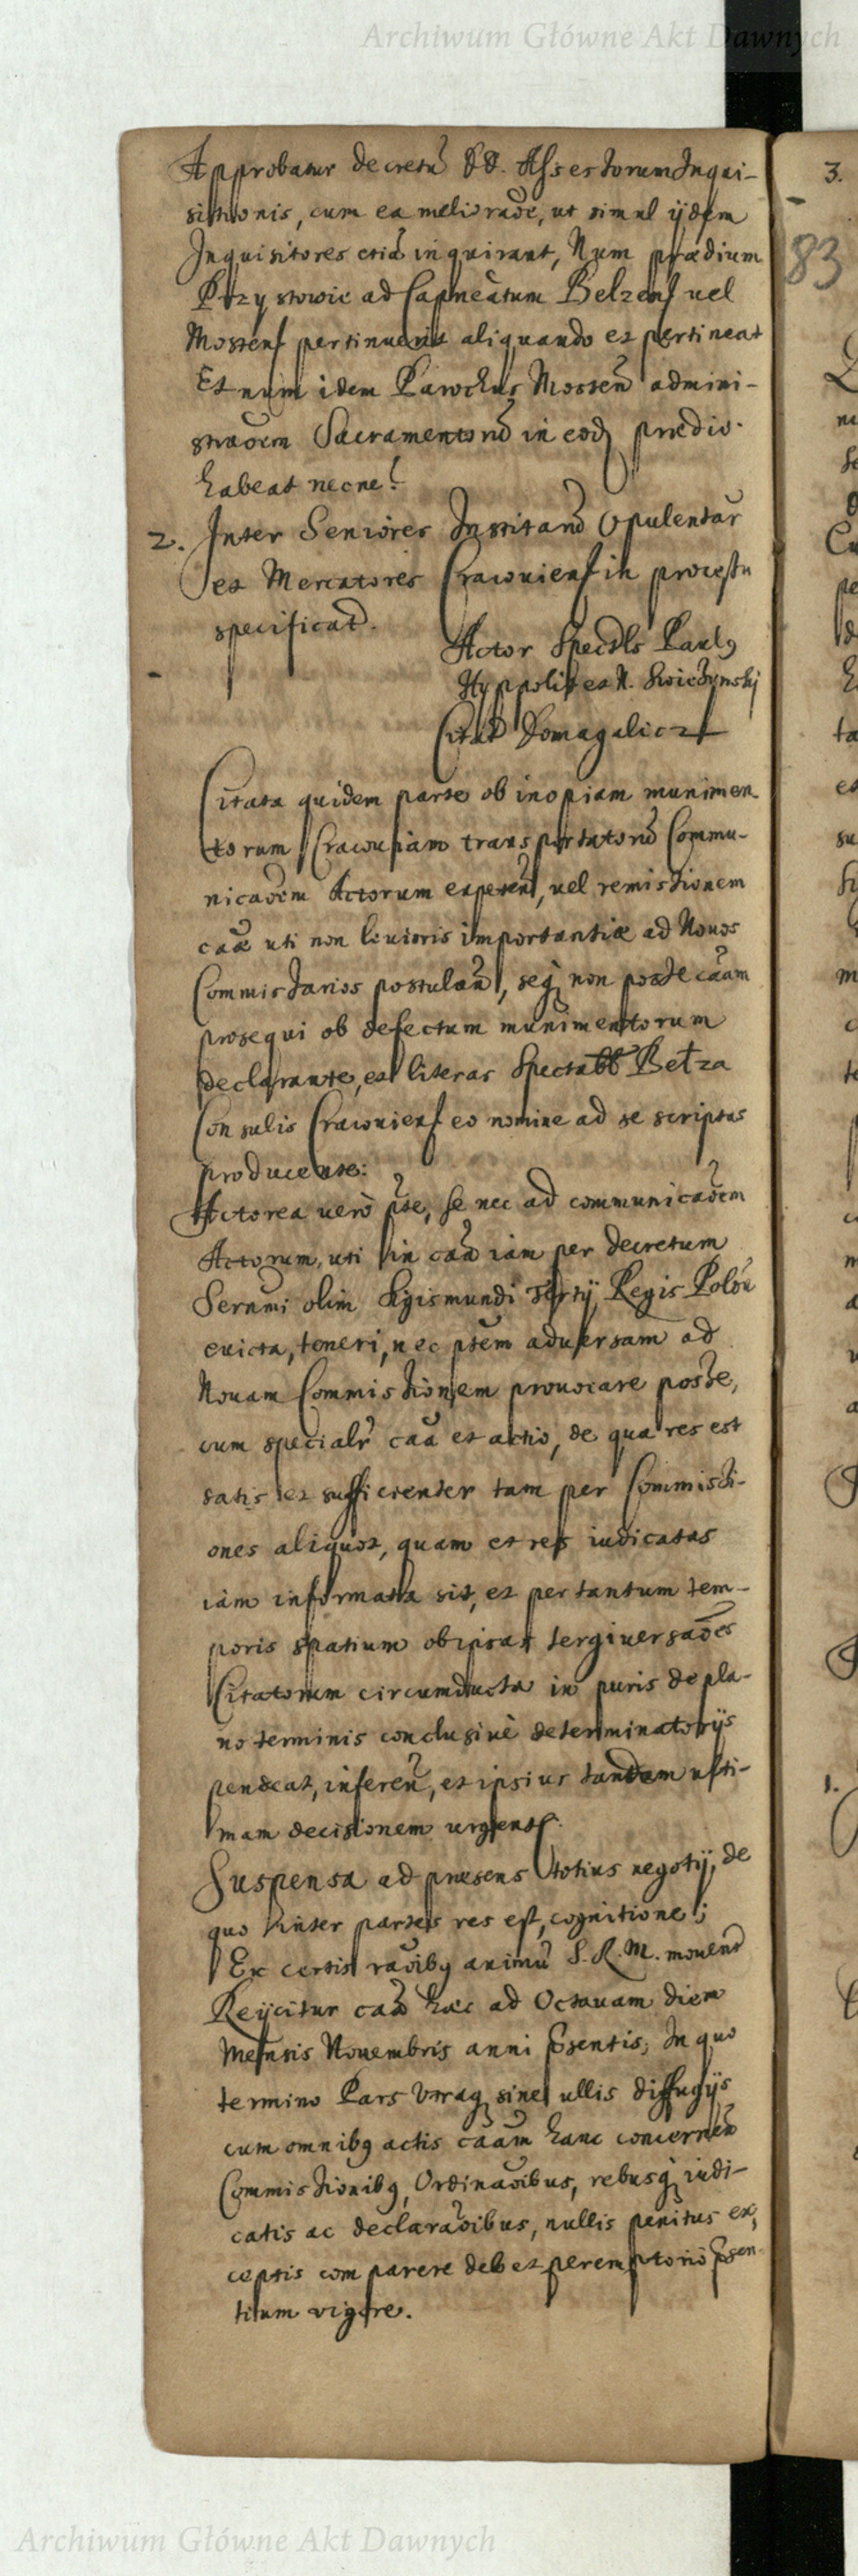 Archiwum Główne Akt Dawnych
Approbatur decretũ DD. Assessorum Inqui-
sitionis, cum ea meliorãoe, ut simul ijdem
Inquisitores etiã inquirant, Num prædium
Przystowie ad Capneatum Belzens vel
Mostens pertinuerit aliquando et pertineat
Et num idem Parochus Mosten admini-
strãoem Sacramentorũ in eod prædio
habeat necne?
2. Inter Seniores Institarũ Opulentar
et Mercatores Cracouiens in processu
specificat.
Actor Spectls Paulq
Hyppolit et N.
Citat Domagalicz
Citata quidem parte ob inopiam munimen-
torum Cracouiam transportatorũ Commu-
nicãoem Actorum expeten, uel remissionem
cãæ uti non leuioris importantiæ ad Nouos
Commissarios postulan, seq non posse cãam
prosequi ob defectum munimentorum
declarante, et literas Spectabl Betza
Consulis Cracouiens eo nomine ad se scriptas
producente:
Actorea uero pte, se nec ad communicãoem
Actorum, uti in cãa iam per decretum
Serenmi olim Sigismundi Tertij Regis Polon
euicta, teneri, nec ptem aduersam ad
Nouam Commissionem prouocare posse,
cum specialr cãa et actio, de qua res est
satis et sufficienter tam per Commissi-
ones aliquot, quam et res iudicatas
iam informata sit, et per tantum tem-
poris spatium ob ipsas tergiuersãoes
Citatorum circumducta in puris de pla-
no terminis conclusiuè determinatorijs
pendeat, inferen, et ipsius tandem ulti-
mam decisionem urgens.
Suspensa ad præsens totius negotij, de
quo inter partes res est, cognitione;
Ex certis rãoibq animũ S. R. M. mouent
Reijcitur cãa hæc ad Octauam diem
Mensis Nouembris anni psentis; In quo
termino Pars Vtraq sine ullis diffugijs
cum omnibq actis cãam hanc concernen
Commissionibq, Ordinãoibus, rebusq iudi-
catis ac declarãoibus, nullis penitus ex-
ceptis comparere debet peremptorio psen-
tium vigore.
3.
83
1.
Archiwum Główne Akt Dawnych